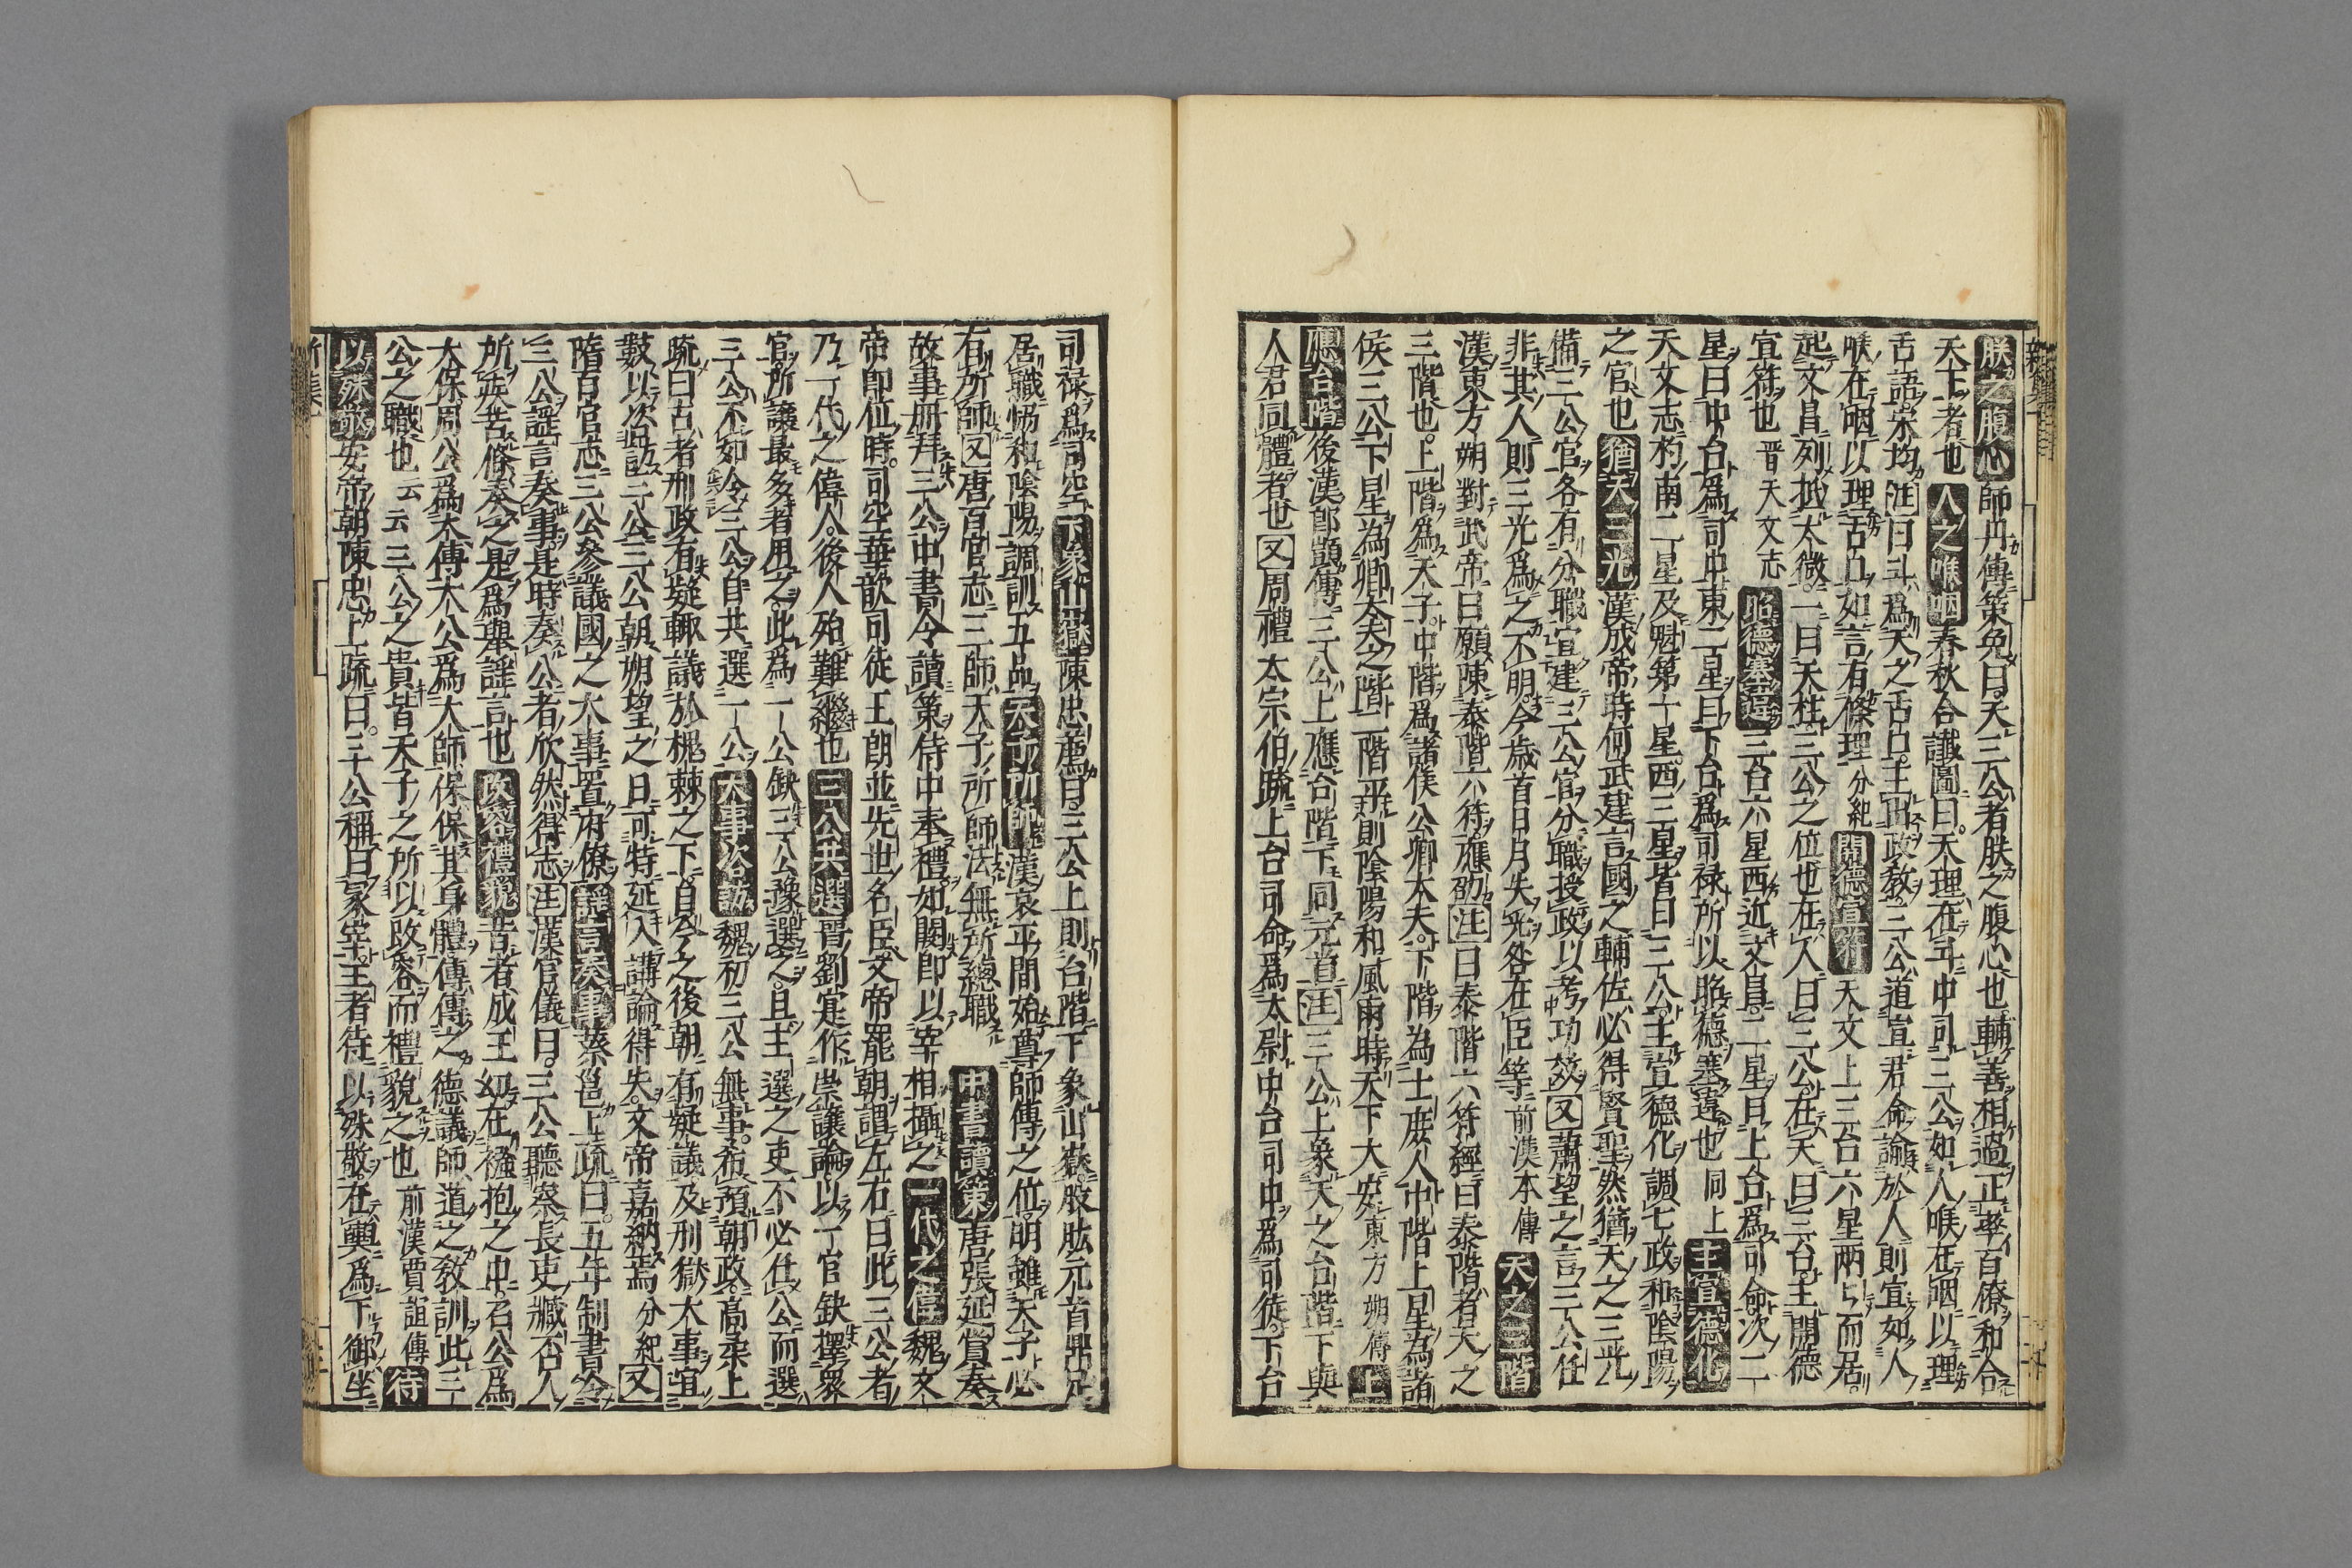 朕之腹心師丹傳策免曰天三公者朕之腹心也輔善相過正率百僚和合
天下者也人之喉咽春秋合讖圖曰天理在斗中司三公如人喉在咽以理
舌語宋均注曰斗為天之舌口主出政教三公道宣君命諭於人則宜如人
喉在咽以理舌口如言有條理分紀開德宣符天文上三台六星兩兩而居
起文昌列抵太微一曰天柱三公之位也在人曰三公在天曰三台主開德
宣符也晋天文志昭德塞違三台六星西近文昌二星曰上台為司命次二
星曰中台為司中東二星曰下台為司禄所以昭德塞違也同上主宣德化
天文志杓南二星及魁第一星西三星皆曰三公主宣德化調七政和陰陽
之官也猶天三光漢成帝時何武建言國之輔佐必得賢聖然猶天之三光
備三公官各有分職宜建三公官分職授政以考功效又蕭望之言三公任
非其人則三光為之不明今歲首日月失光咎在臣等前漢本傳天之三階
漢東方朔對武帝曰願陳泰階六符應劭注曰泰階六符經曰泰階者天之
三階也上階為天子中階為諸侯公卿大夫下階為士庶人中階上星為諸
侯三公下星為卿大夫之階三階平則陰陽和風雨時天下大安東方朔傳上
應台階後漢郎顗傳三公上應台階下同元首注三公上象天之台階下與
人君同體者也又周禮太宗伯疏上台司命為太尉中台司中為司徒下台
司禄為司空下象山嶽陳忠薦曰三公上則台階下象山嶽股肱元首鼎足
居職恊和陰陽調訓五品天子所師漢哀平間始尊師傅之位明雖天子必
有所師又唐百官志三師天子所師法無所總職 中書讀策唐張延賞奏
故事册拜三公中書令讀策侍中奉禮如闕即以宰相攝之一代之偉魏文
帝即位時司空華歆司徒王朗並先世名臣文帝罷朝謂左右曰此三公者
乃一代之偉人後人殆難繼也三公共選晋劉寔作崇讓論以一官缺擇衆
官所讓最多者用之此為一公缺三公豫選之且主選之吏不必仕公而選
三公不如令三公自共選一公大事咨訪魏初三公無事希預朝政高柔上
疏曰古者刑政有疑輒議於槐棘之下自今之後朝有疑議及刑獄大事宜
數以咨訪三公三公朝朔望之日可特延入講論得失文帝嘉納焉分紀又
隋百官志三公參議國之大事置府僚謡言奏事蔡邕上疏曰五年制書令
三公謡言奏事是時奏公者欣然得志注漢官儀曰三公聽察長吏臧否人
所疾苦條奏之是為舉謡言也改容禮貌昔者成王幼在襁抱之中召公為
大保周公為太傅太公為大師保保其身體傅傅之德議師道之教訓此三
公之職也云云三公之貴皆天子之所以改容而禮貌之也前漢賈誼傳待
以殊敬安帝朝陳忠上疏曰三公稱曰冢宰王者待以殊敬在輿為下御坐